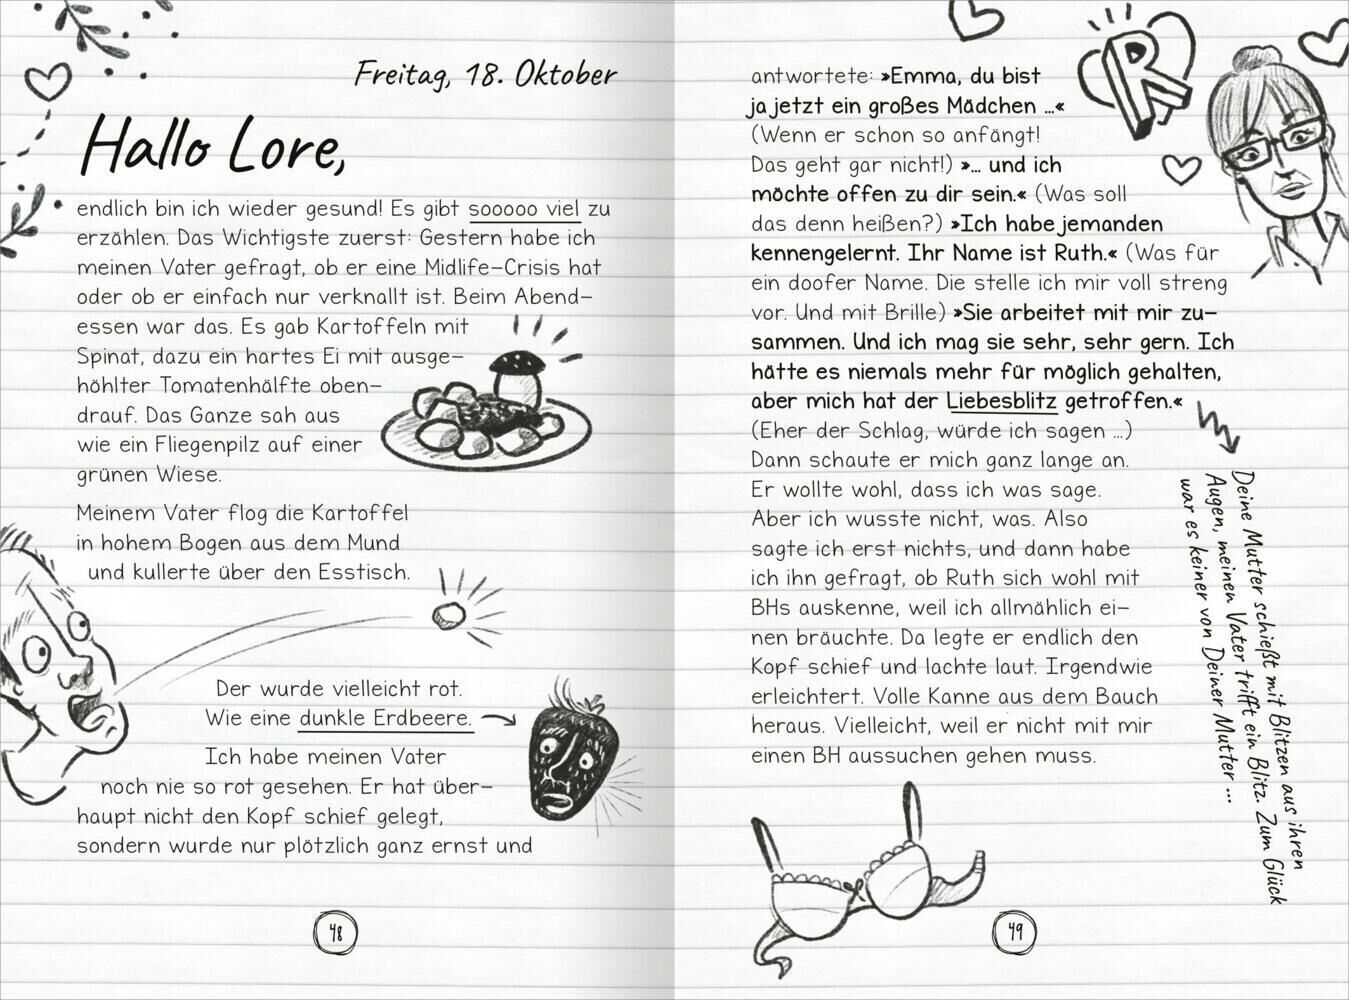 Freitag, 18. Oktober
Hallo Lore,
endlich bin ich wieder gesund! Es gibt sooooo viel zu
erzählen. Das Wichtigste zuerst: Gestern habe ich
meinen Vater gefragt, ob er eine Midlife-Crisis hat
oder ob er einfach nur verknallt ist. Beim Abend-
essen war das. Es gab Kartoffeln mit
Spinat, dazu ein hartes Ei mit ausge-
höhlter Tomatenhälfte oben-
drauf. Das Ganze sah aus
wie ein Fliegenpilz auf einer
grünen Wiese.
Meinem Vater flog die Kartoffel
in hohem Bogen aus dem Mund
und kullerte über den Esstisch.
Der wurde vielleicht rot.
Wie eine dunkle Erdbeere.
Ich habe meinen Vater
noch nie so rot gesehen. Er hat über-
haupt nicht den Kopf schief gelegt,
sondern wurde nur plötzlich ganz ernst und
48
R
antwortete: »Emma, du bist
ja jetzt ein großes Mädchen ...«
(Wenn er schon so anfängt!
Das geht gar nicht!) »... und ich
möchte offen zu dir sein.« (Was soll
das denn heißen?) »Ich habe jemanden
kennengelernt. Ihr Name ist Ruth.« (Was für
ein doofer Name. Die stelle ich mir voll streng
vor. Und mit Brille) »Sie arbeitet mit mir zu-
sammen. Und ich mag sie sehr, sehr gern. Ich
hätte es niemals mehr für möglich gehalten,
aber mich hat der Liebesblitz getroffen.«
(Eher der Schlag, würde ich sagen ...)
Dann schaute er mich ganz lange an.
Er wollte wohl, dass ich was sage.
Aber ich wusste nicht, was. Also
sagte ich erst nichts, und dann habe
ich ihn gefragt, ob Ruth sich wohl mit
BHs auskenne, weil ich allmählich ei-
nen bräuchte. Da legte er endlich den
Kopf schief und lachte laut. Irgendwie
erleichtert. Volle Kanne aus dem Bauch
heraus. Vielleicht, weil er nicht mit mir
einen BH aussuchen gehen muss.
Deine Mutter schießt mit Blitzen aus ihren
Augen, meinen Vater trifft ein Blitz. Zum Glück
war es keiner von Deiner Mutter ...
49